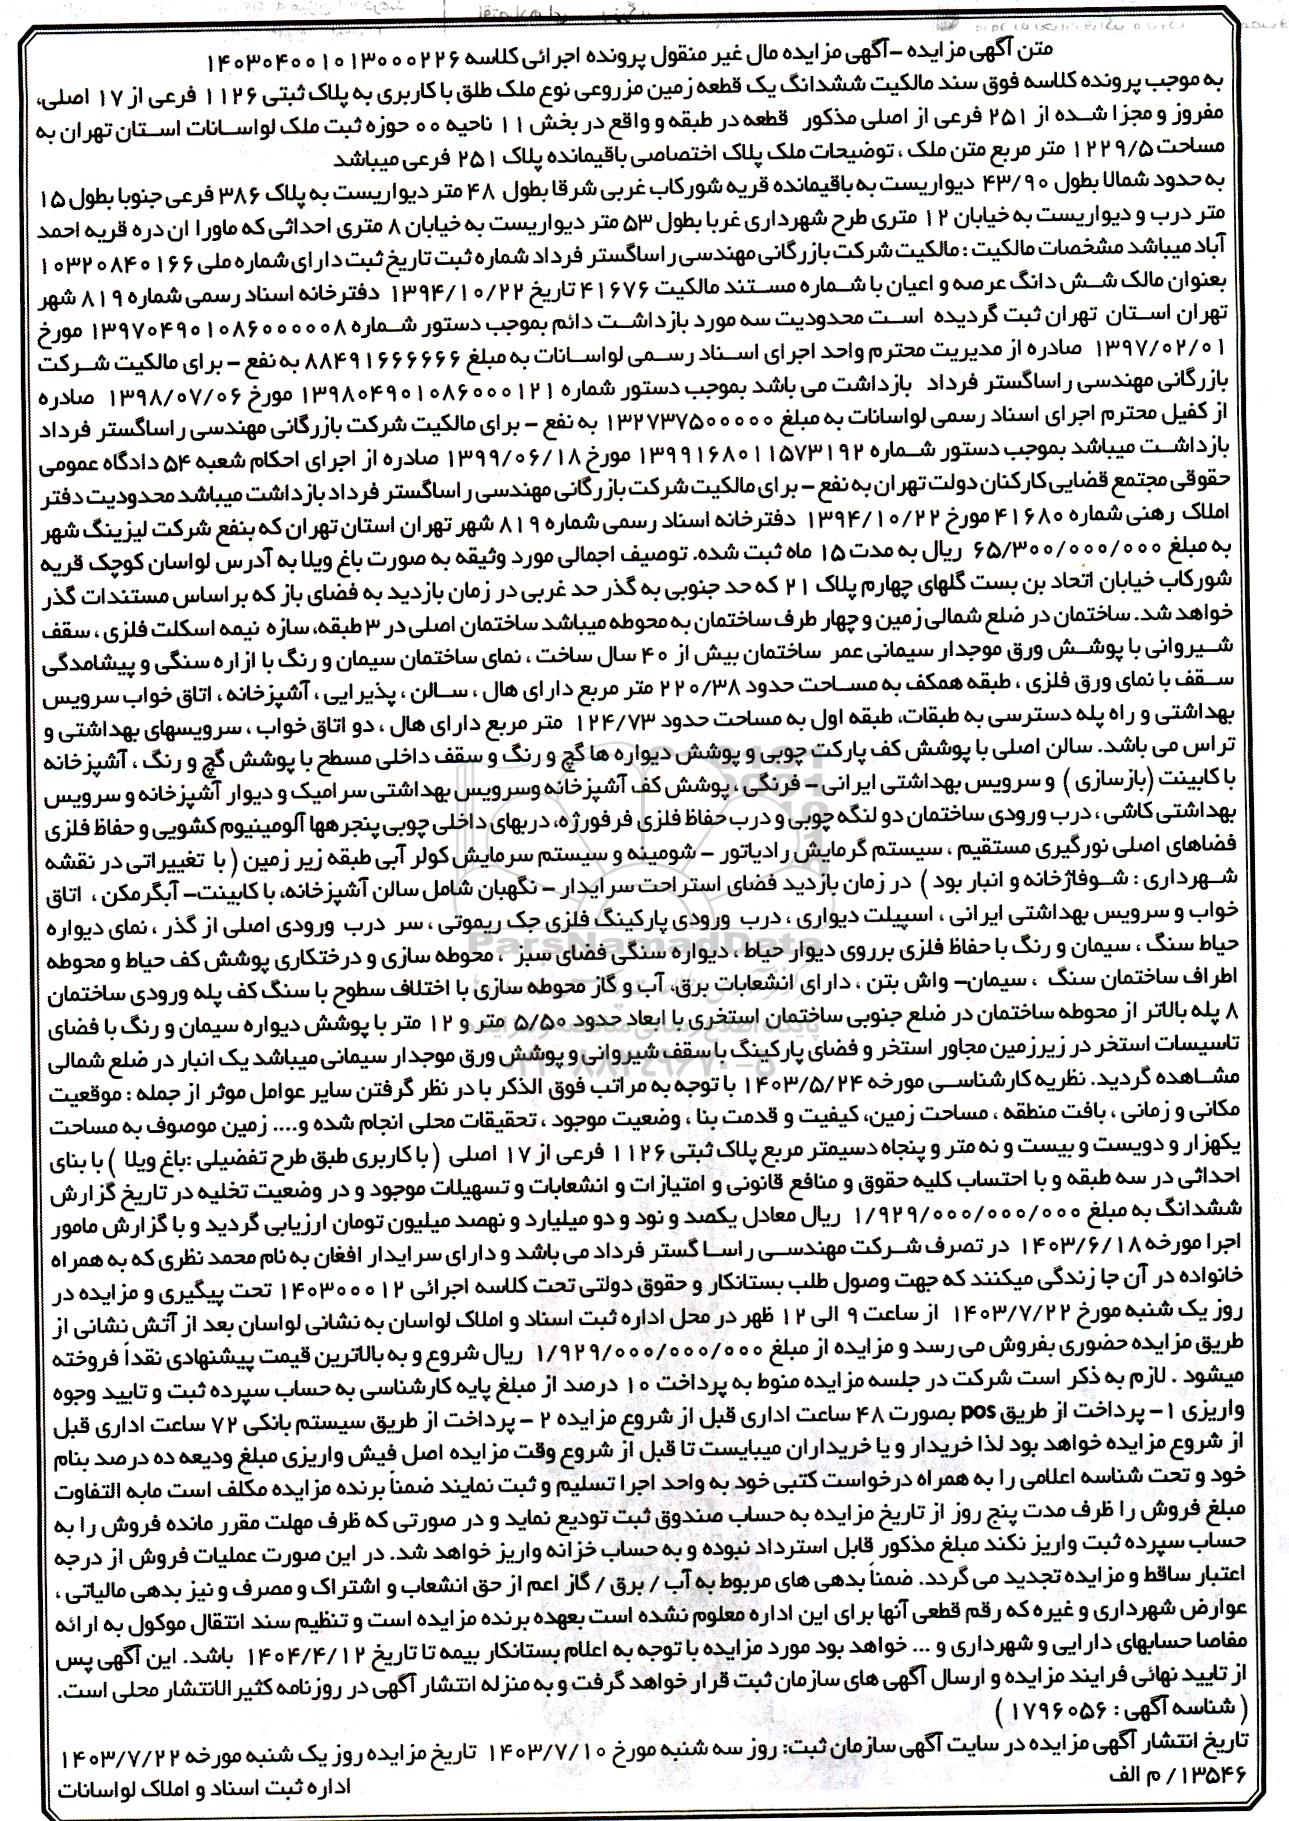 متن آگهی مزایده -آگهی مزایده مال غیر منقول پرونده اجرائی کلاسه ۱۴۰۳۰۴۰۰۱۰۱۳۰۰۰۲۲۶
به موجب پرونده کلاسه فوق سند مالکیت ششدانگ یک قطعه زمین مزروعی نوع ملک طلق با کاربری به پلاک ثبتی ۱۱۲۶ فرعی از ۱۷ اصلی،
مفروز و مجزا شده از ۲۵۱ فرعی از اصلی مذکور قطعه در طبقه و واقع در بخش ۱۱ ناحیه ۰۰ حوزه ثبت ملک لواسانات استان تهران به
مساحت ۱۲۲۹/۵ متر مربع متن ملک ، توضیحات ملک پلاک اختصاصی باقیمانده پلاک ۲۵۱ فرعی میباشد
به حدود شمالا بطول ۴۳/۹۰ دیواریست به باقیمانده قریه شورکاب غربی شرقا بطول ۴۸ متر دیواریست به پلاک ۳۸۶ فرعی جنوبا بطول ۱۵
متر درب و دیواریست به خیابان ۱۲ متری طرح شهرداری غربا بطول ۵۳ متر دیواریست به خیابان ۸ متری احداثی که ماورا ان دره قریه احمد
آباد میباشد مشخصات مالکیت : مالکیت شرکت بازرگانی مهندسی راساگستر فرداد شماره ثبت تاریخ ثبت دارای شماره ملی ۱۰۳۲۰۸۴۰۱۶۶
بعنوان مالک شش دانگ عرصه و اعیان با شماره مستند مالکیت ۴۱۶۷۶ تاریخ ۱۳۹۴/۱۰/۲۲ دفترخانه اسناد رسمی شماره ۸۱۹ شهر
تهران استان تهران ثبت گردیده است محدودیت سه مورد بازداشت دائم بموجب دستور شماره ۱۳۹۷۰۴۹۰۱۰۸۶۰۰۰۰۰۸ مورخ
۱۳۹۷/۰۲/۰۱ صادره از مدیریت محترم واحد اجرای اسناد رسمی لواسانات به مبلغ ۸۸۴۹۱۶۶۶۶۶۶ به نفع - برای مالکیت شرکت
بازرگانی مهندسی راساگستر فرداد بازداشت می باشد بموجب دستور شماره ۱۳۹۸۰۴۹۰۱۰۸۶۰۰۰۱۲۱ مورخ ۱۳۹۸/۰۷/۰۶ صادره
از کفیل محترم اجرای اسناد رسمی لواسانات به مبلغ ۱۳۲۷۳۷۵۰۰۰۰۰ به نفع - برای مالکیت شرکت بازرگانی مهندسی راساگستر فرداد
بازداشت میباشد بموجب دستور شماره ۱۳۹۹۱۶۸۰۱۱۵۷۳۱۹۲ مورخ ۱۳۹۹/۰۶/۱۸ صادره از اجرای احکام شعبه ۵۴ دادگاه عمومی
حقوقی مجتمع قضایی کارکنان دولت تهران به نفع - برای مالکیت شرکت بازرگانی مهندسی راساگستر فرداد بازداشت میباشد محدودیت دفتر
املاک رهنی شماره ۴۱۶۸۰ مورخ ۱۳۹۴/۱۰/۲۲ دفترخانه اسناد رسمی شماره ۸۱۹ شهر تهران استان تهران که بنفع شرکت لیزینگ شهر
به مبلغ ۶۵/۳۰۰/۰۰۰/۰۰۰ ریال به مدت ۱۵ ماه ثبت شده. توصیف اجمالی مورد وثیقه به صورت باغ ویلا به آدرس لواسان کوچک قریه
شورکاب خیابان اتحاد بن بست گلهای چهارم پلاک ۲۱ که حد جنوبی به گذر حد غربی در زمان بازدید به فضای باز که بر اساس مستندات گذر
خواهد شد. ساختمان در ضلع شمالی زمین و چهار طرف ساختمان به محوطه میباشد ساختمان اصلی در ۳ طبقه، سازه نیمه اسکلت فلزی ، سقف
شیروانی با پوشش ورق موجدار سیمانی عمر ساختمان بیش از ۴۰ سال ساخت ، نمای ساختمان سیمان و رنگ با ازاره سنگی و پیشامدگی
سقف با نمای ورق فلزی ، طبقه همکف به مساحت حدود ۲۲۰/۳۸ متر مربع دارای هال ، سالن ، پذیرایی ، آشپزخانه ، اتاق خواب سرویس
بهداشتی و راه پله دسترسی به طبقات، طبقه اول به مساحت حدود ۱۲۴/۷۳ متر مربع دارای هال ، دو اتاق خواب ، سرویسهای بهداشتی و
تراس می باشد. سالن اصلی با پوشش کف پارکت چوبی و پوشش دیواره ها گچ و رنگ و سقف داخلی مسطح با پوشش گچ و رنگ ، آشپزخانه
با کابینت (بازسازی ) و سرویس بهداشتی ایرانی - فرنگی ، پوشش کف آشپزخانه وسرویس بهداشتی سرامیک و دیوار آشپزخانه و سرویس
بهداشتی کاشی ، درب ورودی ساختمان دو لنگه چوبی و درب حفاظ فلزی فرفورژه، دربهای داخلی چوبی پنجرهها آلومینیوم کشویی و حفاظ فلزی
فضاهای اصلی نورگیری مستقیم ، سیستم گرمایش رادیاتور - شومینه و سیستم سرمایش کولر آبی طبقه زیر زمین ( با تغییراتی در نقشه
شهرداری : شوفاژخانه و انبار بود ) در زمان بازدید فضای استراحت سرایدار - نگهبان شامل سالن آشپزخانه، با کابینت- آبگرمکن ، اتاق
خواب و سرویس بهداشتی ایرانی ، اسپیلت دیواری ، درب ورودی پارکینگ فلزی جک ریموتی ، سر درب ورودی اصلی از گذر ، نمای دیواره
حیاط سنگ ، سیمان و رنگ با حفاظ فلزی برروی دیوار حیاط ، دیواره سنگی فضای سبز ، محوطه سازی و درختکاری پوشش کف حیاط و محوطه
اطراف ساختمان سنگ ، سیمان- واش بتن ، دارای انشعابات برق، آب و گاز محوطه سازی با اختلاف سطوح با سنگ کف پله ورودی ساختمان
۸ پله بالاتر از محوطه ساختمان در ضلع جنوبی ساختمان استخری با ابعاد حدود ۵/۵۰ متر و ۱۲ متر با پوشش دیواره سیمان و رنگ با فضای
تاسیسات استخر در زیرزمین مجاور استخر و فضای پارکینگ با سقف شیروانی و پوشش ورق موجدار سیمانی میباشد یک انبار در ضلع شمالی
مشاهده گردید. نظریه کارشناسی مورخه ۱۴۰۳/۵/۲۴ با توجه به مراتب فوق الذکر با در نظر گرفتن سایر عوامل موثر از جمله : موقعیت
مکانی و زمانی ، بافت منطقه ، مساحت زمین، کیفیت و قدمت بنا ، وضعیت موجود ، تحقیقات محلی انجام شده و.... زمین موصوف به مساحت
یکهزار و دویست و بیست و نه متر و پنجاه دسیمتر مربع پلاک ثبتی ۱۱۲۶ فرعی از ۱۷ اصلی ( با کاربری طبق طرح تفضیلی :باغ ویلا ) با بنای
احداثی در سه طبقه و با احتساب کلیه حقوق و منافع قانونی و امتیازات و انشعابات و تسهیلات موجود و در وضعیت تخلیه در تاریخ گزارش
ششدانگ به مبلغ ۱/۹۲۹/۰۰۰/۰۰۰/۰۰۰ ریال معادل یکصد و نود و دو میلیارد و نهصد میلیون تومان ارزیابی گردید و با گزارش مامور
اجرا مورخه ۱۴۰۳/۶/۱۸ در تصرف شرکت مهندسی راسا گستر فرداد می باشد و دارای سرایدار افغان به نام محمد نظری که به همراه
خانواده در آن جا زندگی میکنند که جهت وصول طلب بستانکار و حقوق دولتی تحت کلاسه اجرائی ۱۴۰۳۰۰۰۱۲ تحت پیگیری و مزایده در
روز یک شنبه مورخ ۱۴۰۳/۷/۲۲ از ساعت ۹ الی ۱۲ ظهر در محل اداره ثبت اسناد و املاک لواسان به نشانی لواسان بعد از آتش نشانی از
طریق مزایده حضوری بفروش می رسد و مزایده از مبلغ ۱/۹۲۹/۰۰۰/۰۰۰/۰۰۰ ریال شروع و به بالاترین قیمت پیشنهادی نقداً فروخته
میشود . لازم به ذکر است شرکت در جلسه مزایده منوط به پرداخت ۱۰ درصد از مبلغ پایه کارشناسی به حساب سپرده ثبت و تایید وجوه
واریزی ۱- پرداخت از طریق pos بصورت ۴۸ ساعت اداری قبل از شروع مزایده ۲ - پرداخت از طریق سیستم بانکی ۷۲ ساعت اداری قبل
از شروع مزایده خواهد بود لذا خریدار و یا خریداران میبایست تا قبل از شروع وقت مزایده اصل فیش واریزی مبلغ ودیعه ده درصد بنام
خود و تحت شناسه اعلامی را به همراه درخواست کتبی خود به واحد اجرا تسلیم و ثبت نمایند ضمناً برنده مزایده مکلف است مابه التفاوت
مبلغ فروش را ظرف مدت پنج روز از تاریخ مزایده به حساب صندوق ثبت تودیع نماید و در صورتی که ظرف مهلت مقرر مانده فروش را به
حساب سپرده ثبت واریز نکند مبلغ مذکور قابل استرداد نبوده و به حساب خزانه واریز خواهد شد. در این صورت عملیات فروش از درجه
اعتبار ساقط و مزایده تجدید می گردد. ضمناً بدهی های مربوط به آب / برق / گاز اعم از حق انشعاب و اشتراک و مصرف و نیز بدهی مالیاتی ،
عوارض شهرداری و غیره که رقم قطعی آنها برای این اداره معلوم نشده است بعهده برنده مزایده است و تنظیم سند انتقال موکول به ارائه
مفاصا حسابهای دارایی و شهرداری و ... خواهد بود مورد مزایده با توجه به اعلام بستانکار بیمه تا تاریخ ۱۴۰۴/۴/۱۲ باشد. این آگهی پس
از تایید نهائی فرایند مزایده و ارسال آگهی های سازمان ثبت قرار خواهد گرفت و به منزله انتشار آگهی در روزنامه کثیرالانتشار محلی است.
( شناسه آگهی : ۱۷۹۶۰۵۶ )
تاریخ انتشار آگهی مزایده در سایت آگهی سازمان ثبت: روز سه شنبه مورخ ۱۴۰۳/۷/۱۰ تاریخ مزایده روز یک شنبه مورخه ۱۴۰۳/۷/۲۲
۱۳۵۴۶/ م الف
اداره ثبت اسناد و املاک لواسانات
ParsNamadData